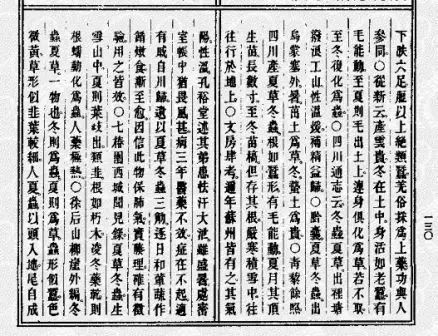 下胅六足屐以上絕類蠶羌俗採為上藥功與人
參同○從新云產雲貴冬在土中身活如老蠶有
毛能動至夏則毛出土上連身俱化為草若不取
至冬復化為蟲○四川通志云冬蟲夏草出裡塘
撥浪工山性溫煖補精益髓○黔囊夏草冬蟲出
烏蒙塞外暑茁土為草冬蟄土為蟲○青藜餘照
四川產夏草冬蟲根如蠶形有毛能動夏月其頂
生苗長數寸至冬苗槁但存其根嚴寒積雪中往
往行於地上○文房肆考邇年蘇州皆有之其氣
陽性溫孔裕堂述其弟患怯汗大泄雖盛暑處密
室帳中猶畏風甚病三年醫藥不效症在不起適
有戚自川歸遺以夏草冬蟲三觔逐日和葷蔬作
餚燉食漸至愈因信此物保肺氣實腠理確有徵
驗用之皆效○七椿園西域聞見錄夏草冬蟲生
雪山中夏則葉歧出類韭根如朽木凌冬葉乾則
根蠕動化為蟲入藥極熱○徐后山柳崖外編冬
蟲夏草一物也冬則為蟲夏則為草蟲形似蠶色
微黃草形似韭葉較細入夏蟲以頭入地尾自成
一三〇